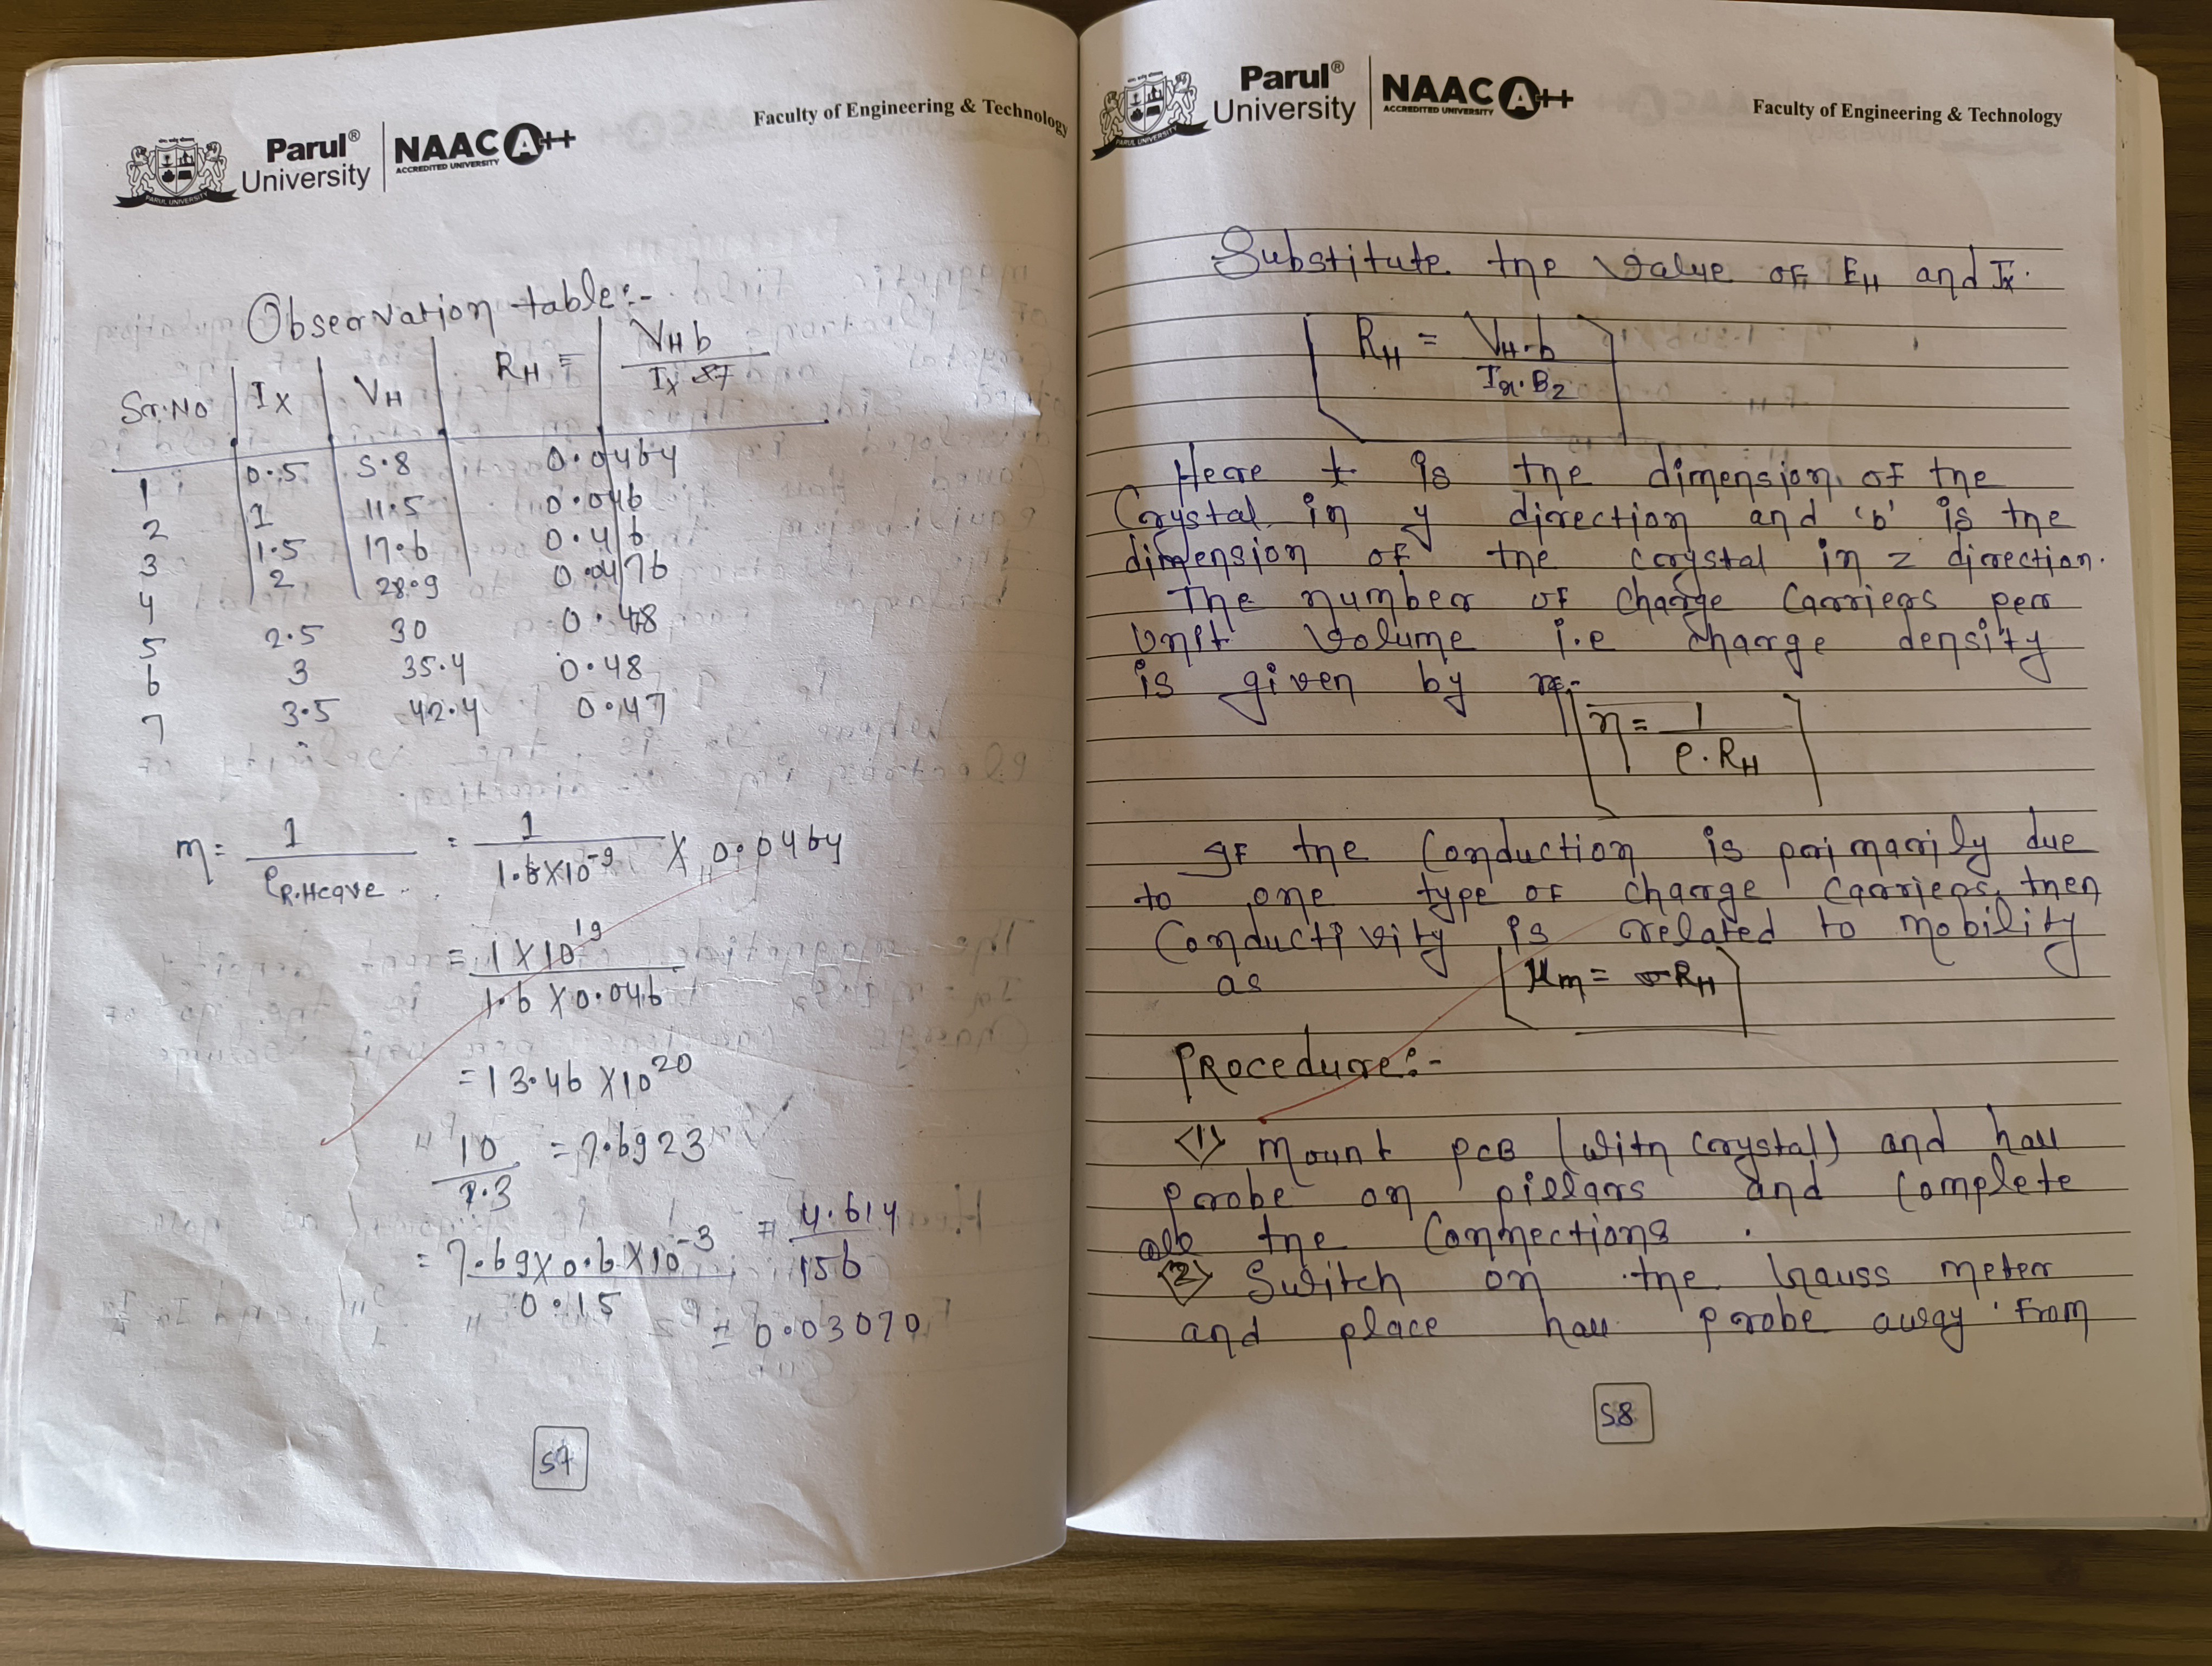 Parul®
University
NAAC A++
ACCREDITED UNIVERSITY
PARUL UNIVERSITY
Faculty of Engineering & Technology
Observation table:-
Sr.No | Ix | VH | RH = VH b / Ix
1 0.5 5.8 0.0464
2 1 11.5 0.046
3 1.5 17.6 0.46
4 2 28.9 0.0476
5 2.5 30 0.48
6 3 35.4 0.48
7 3.5 42.4 0.47
n = 1 / e R.Have = 1 / 1.6X10⁻⁹ X 0.0464
= 1 X 10¹⁹ / 1.6 X 0.046
= 13.46 X 10²⁰
10 / 1.3 = 7.6923
= 7.69 X 0.6 X 10⁻³ / 0.15 = 4.614 / 156
= 0.03070
57
Parul®
University
NAAC A++
ACCREDITED UNIVERSITY
PARUL UNIVERSITY
Faculty of Engineering & Technology
Substitute the value of EH and Ix.
RH = VH.b / Ix.Bz
Here t is the dimension of the
Crystal in y direction and 'b' is the
dimension of the crystal in z direction.
The number of charge Carriers per
Unit Volume i.e charge density
is given by n:-
n = 1 / e.RH
If the Conduction is primarily due
to one type of charge carriers, then
Conductivity is related to mobility
as μm = σRH
PRocedure:-
<1> Mount PCB (with Crystal) and hall
probe on pillars and Complete
all the Connections.
<2> Switch on the Gauss meter
and place hall probe away From
58